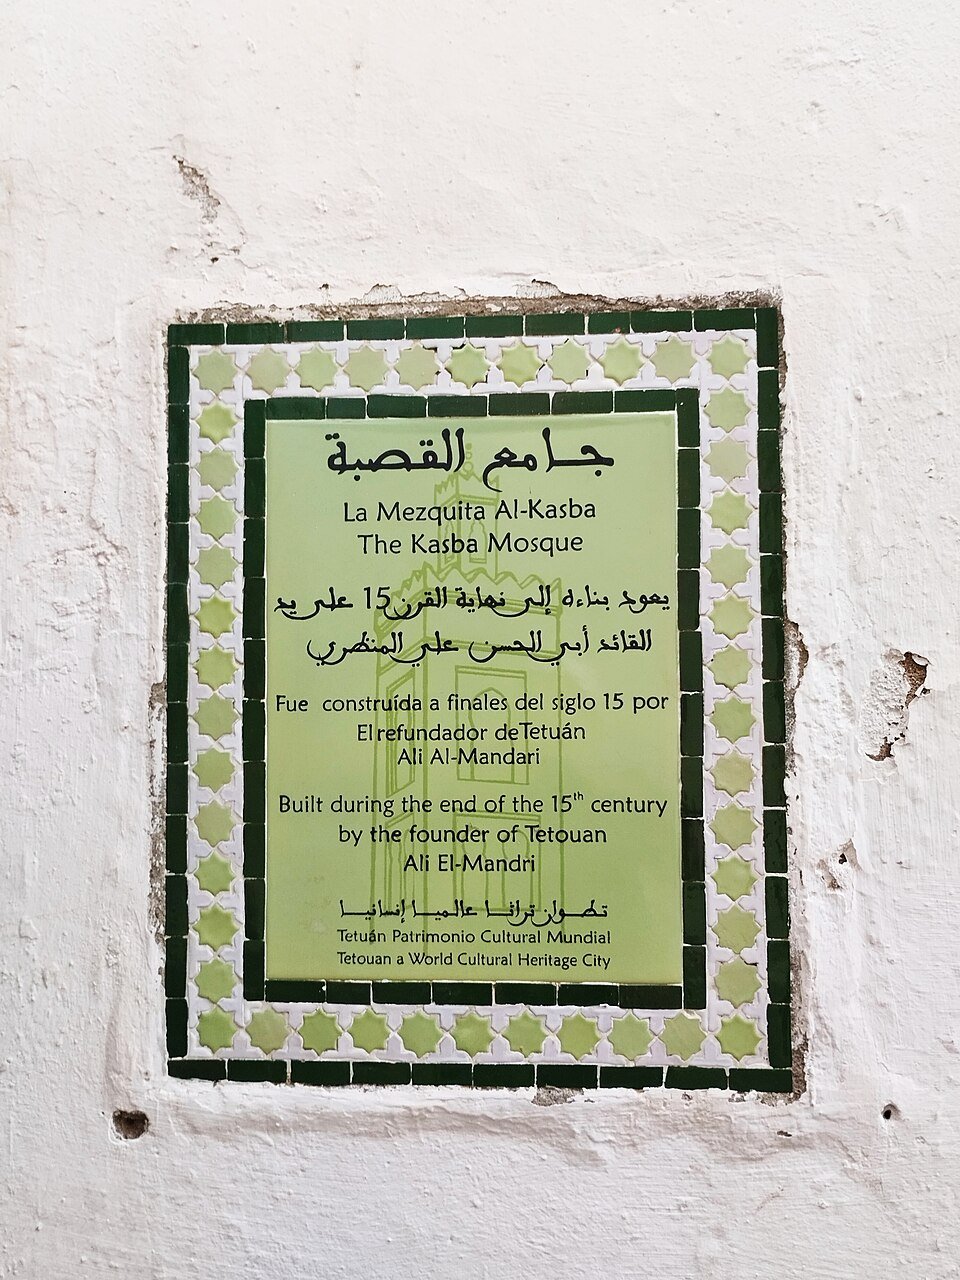 جامع القصبة
La Mezquita Al-Kasba
The Kasba Mosque
يعود بناءه إلى نهاية القرن 15 على يد
القائد أبي الحسن علي المنظري
Fue construída a finales del siglo 15 por
El refundador de Tetuán
Ali Al-Mandari
Built during the end of the 15th century
by the founder of Tetouan
Ali El-Mandri
تطوان تراثا عالميا إنسانيا
Tetuán Patrimonio Cultural Mundial
Tetouan a World Cultural Heritage City